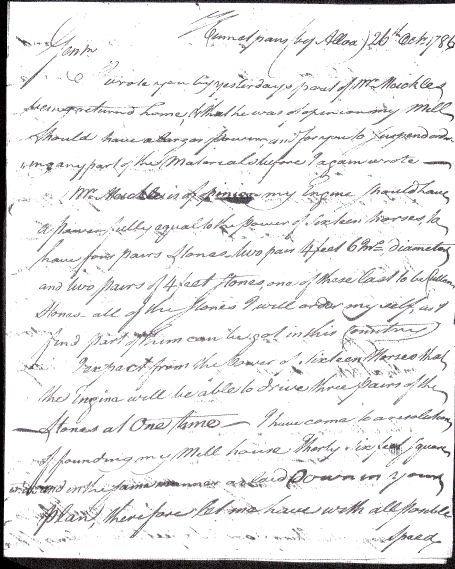 Kennetpans (by Alloa) 26th Octr. 1786
Gentn
I wrote you by yesterdays post of Mr Meickles
being return'd home & that he was of opinion my Mill
Should have a larger power and for you to Suspend order
ing any part of the Materials before I again wrote —
Mr Meickle is of opinion my Engine should have
a power fully equal to the power of Sixteen horses, to
have four pairs Stones, two pair 4 feet 6 Ins. diameter
and two pairs of 4 feet Stones, one of these last to be
Stones all of the Stones I will order my self, as I
find part of them can be got in this Country
I expect from the Power of Sixteen Horses that
the Engine will be able to drive three pairs of the
Stones at One time — I have come to a resolution
of founding my Mill house Thirty Six feet Square
within and in the same manner as laid Down in your
plan, therefore let me have with all possible
Speed